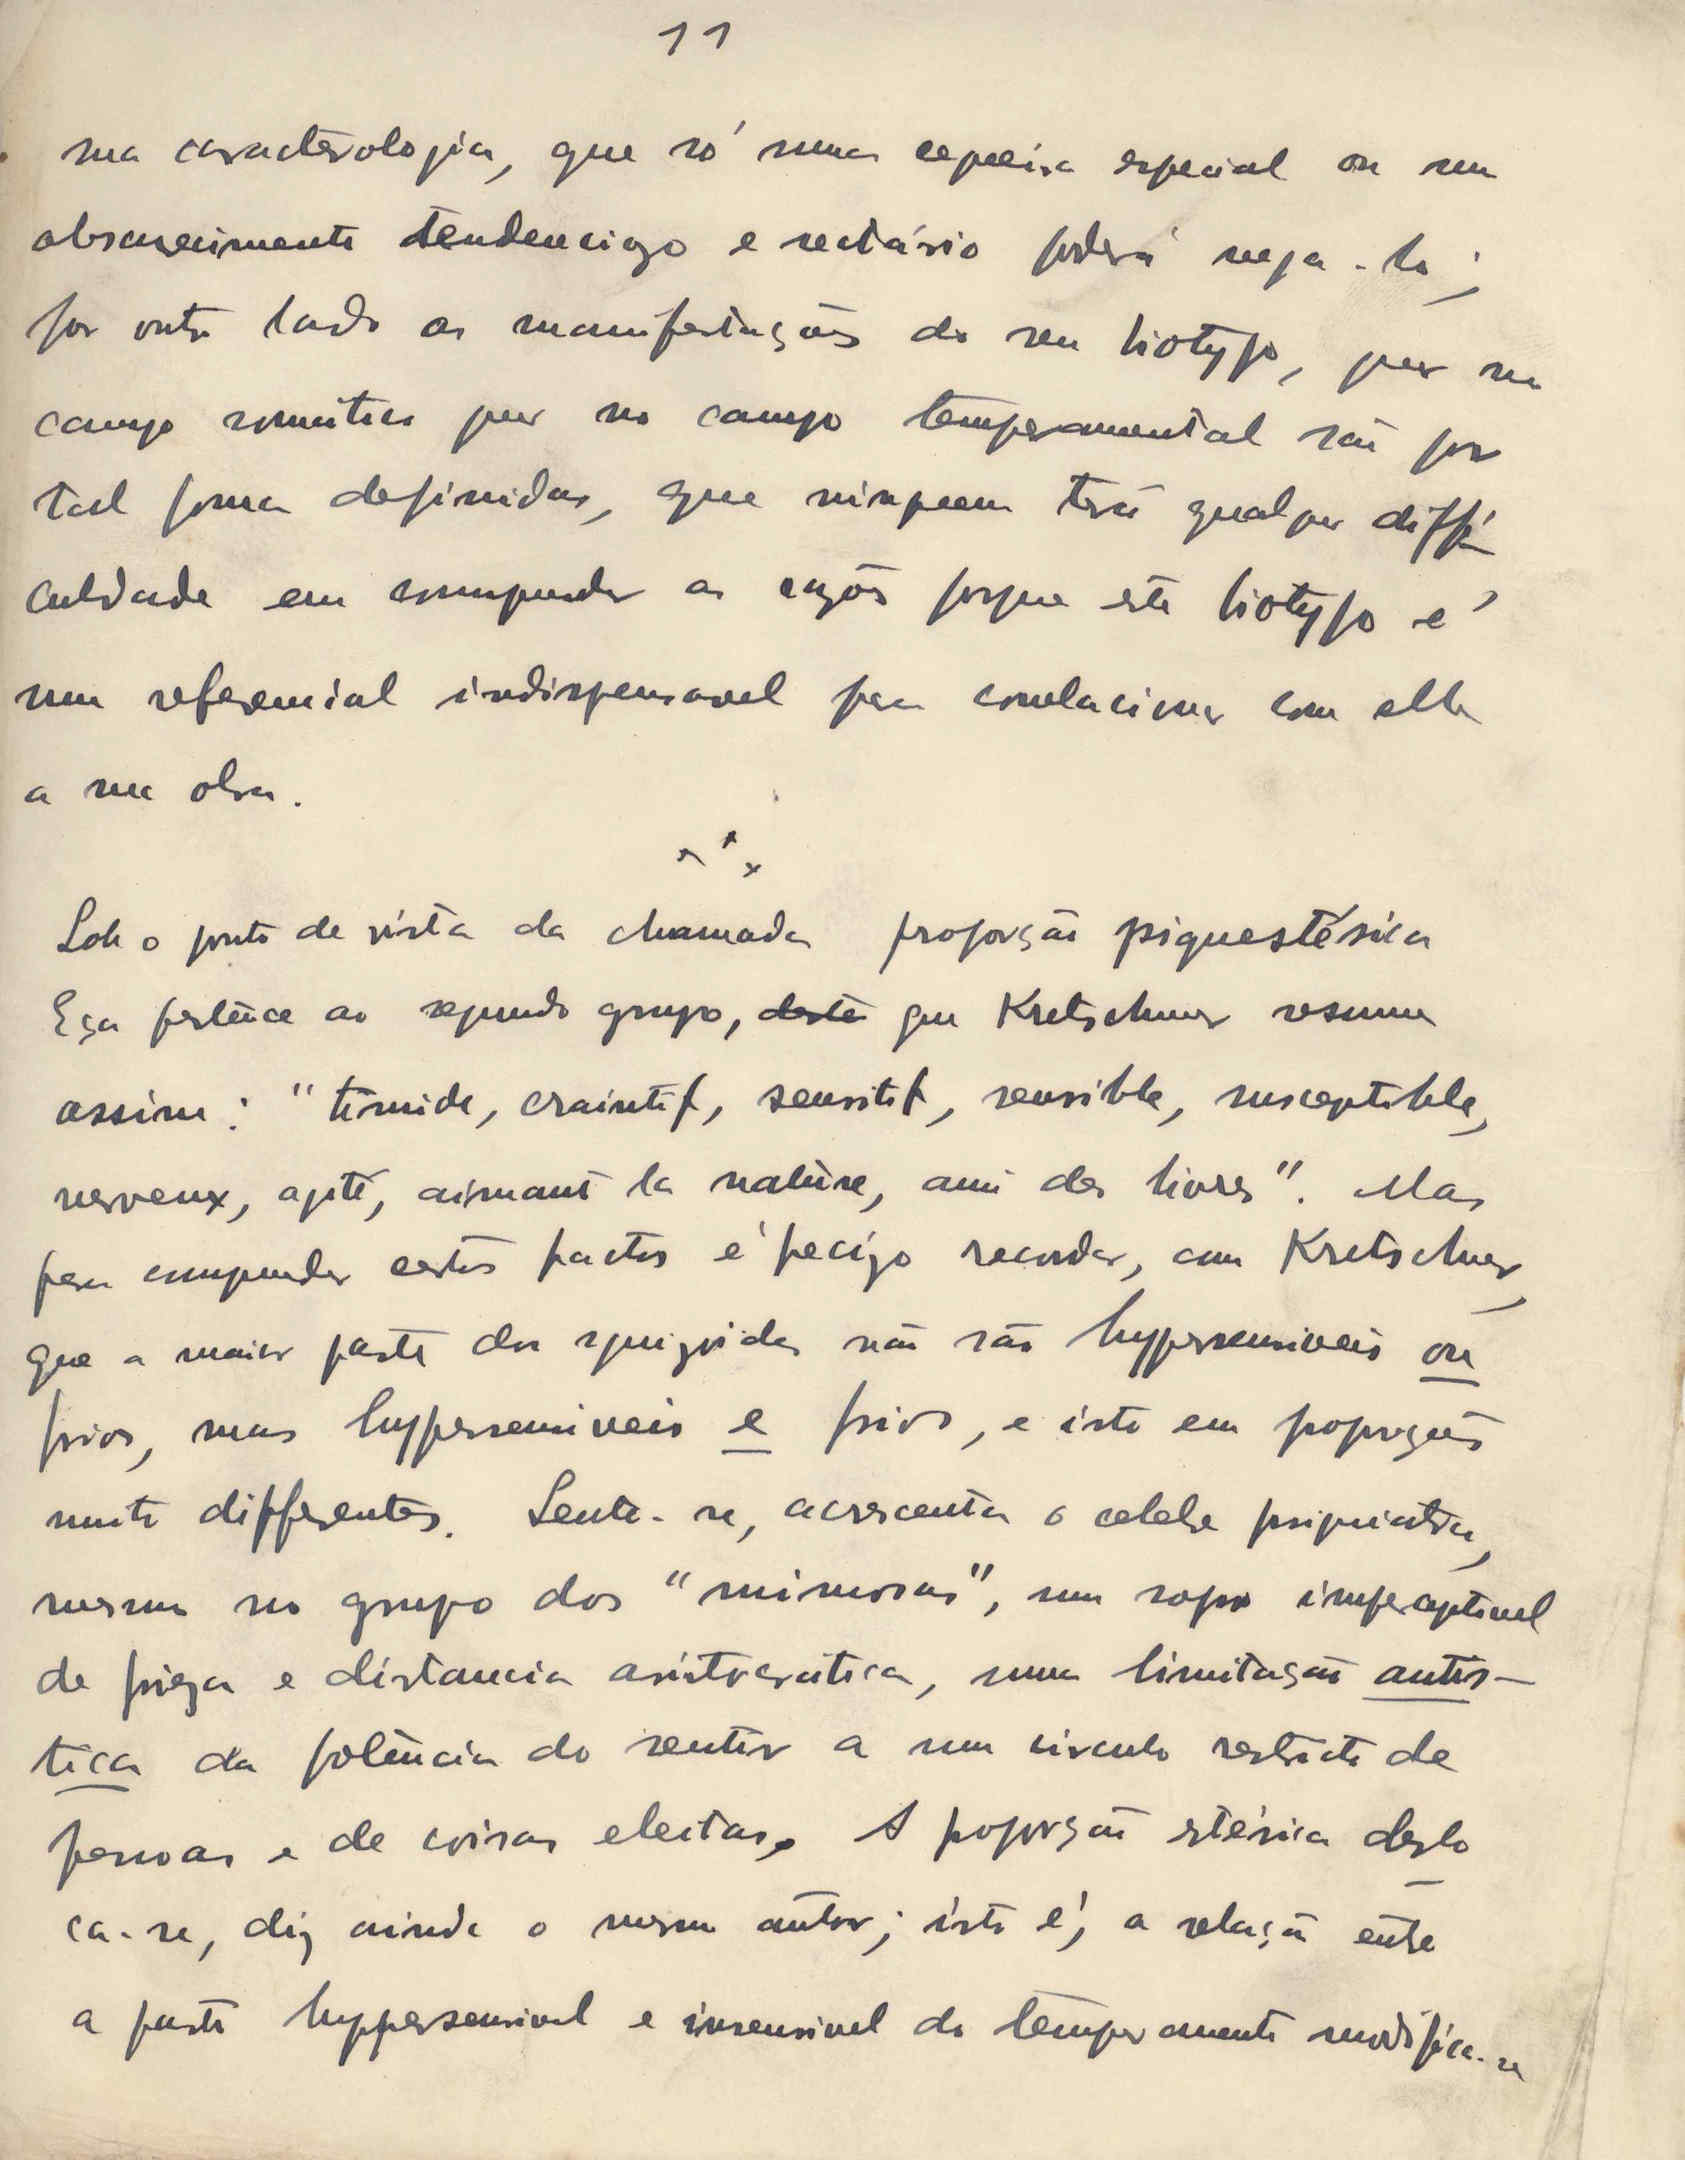 11
sua caracterologia, que só uma cegueira especial ou um
obscurecimento tendencioso e sectário poderá nega-lo;
por outro lado as manifestações do seu biotypo, quer no
campo somático quer no campo temperamental são por
tal forma definidas, que ninguem terá qualquer diffi
culdade em comprehender as razões porque este biotypo é
um referencial indispensavel para correlacionar com elle
a sua obra.
x x x
Sob o ponto de vista da chamada proporção psiquestésica
Eça pertence ao segundo grupo, deste que Kretschmer resume
assim: "timide, craintif, sensitif, sensible, susceptible,
nerveux, agité, aimant la nature, ami des livres". Mas
para comprehender estes factos é preciso recordar, com Kretschmer,
que a maior parte dos squizoides não são hypersensiveis ou
frios, mas hypersensiveis e frios, e isto em proporções
muito differentes. Sente-se, acrescenta o celebre psiquiatra,
mesmo no grupo dos "mimosas", um sopro imperceptivel
de frieza e distancia aristocrática, uma limitação autis-
tica da potência do sentir a um circulo restricto de
pessoas e de coisas eleitas. A proporção estésica deslo
ca-se, diz ainda o mesmo autor; isto é, a relação entre
a parte hyppersensivel e insensivel do temperamento modifica-se